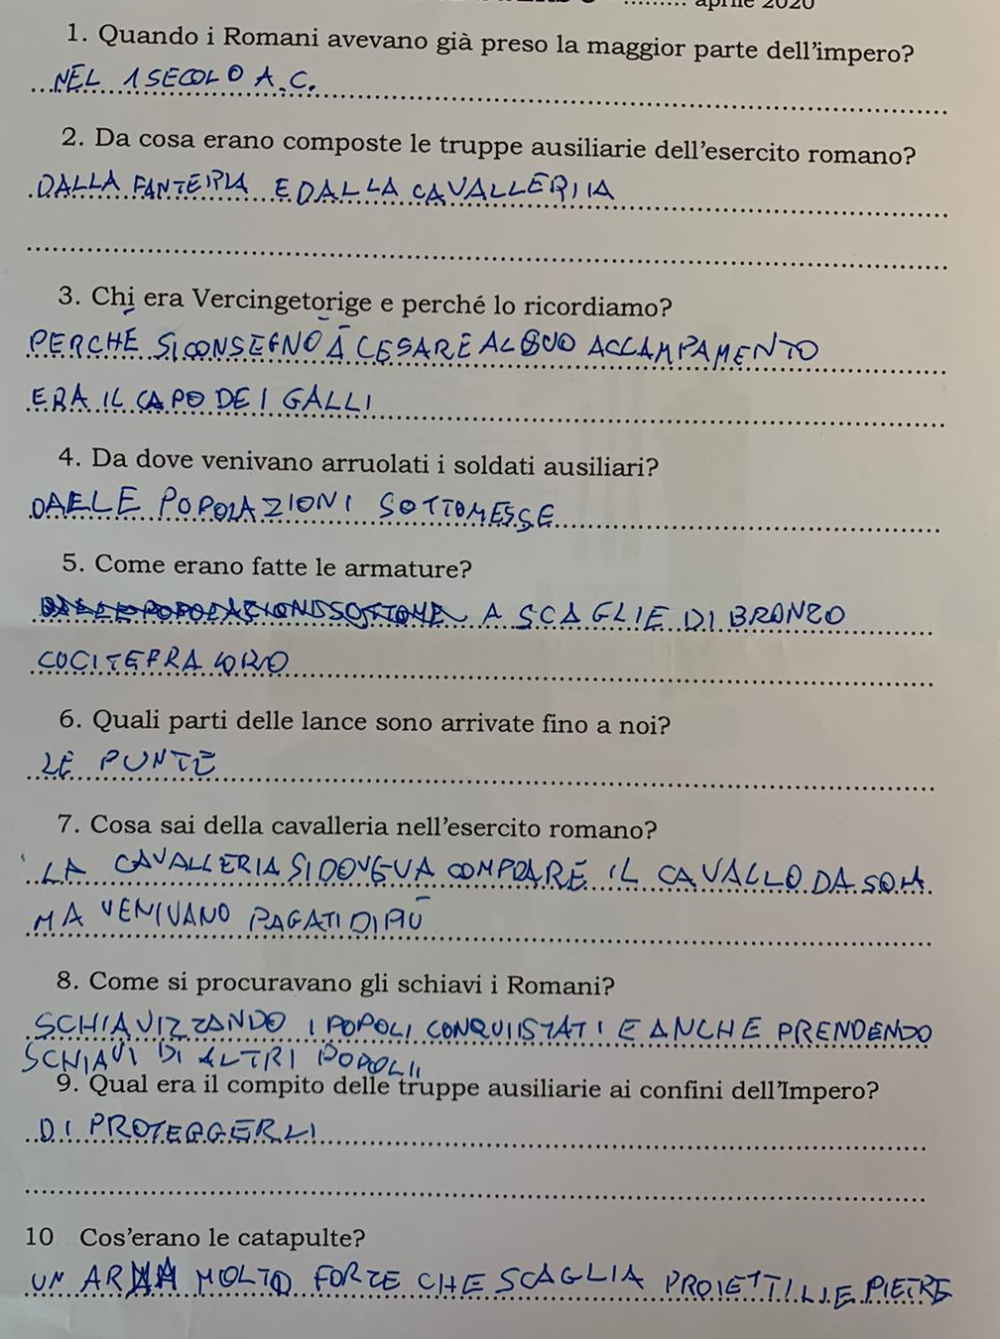 aprile 2020
1. Quando i Romani avevano già preso la maggior parte dell'impero?
NEL 1 SECOLO A.C.
2. Da cosa erano composte le truppe ausiliarie dell'esercito romano?
DALLA FANTERIA E DALLA CAVALLERIIA
3. Chi era Vercingetorige e perché lo ricordiamo?
PERCHÉ SI CONSEGNÒ A CESARE AL SUO ACCAMPAMENTO
ERA IL CAPO DEI GALLI
4. Da dove venivano arruolati i soldati ausiliari?
DAELE POPOLAZIONI SOTTOMESSE
5. Come erano fatte le armature?
A SCAGLIE DI BRONZO
COCITE FRA LORO
6. Quali parti delle lance sono arrivate fino a noi?
LE PUNTE
7. Cosa sai della cavalleria nell'esercito romano?
LA CAVALLERIA SI DOVEVA COMPRARE IL CAVALLO DA SOLA
MA VENIVANO PAGATI DI PIÙ
8. Come si procuravano gli schiavi i Romani?
SCHIAVIZZANDO I POPOLI CONQUIISTATI E ANCHE PRENDENDO
SCHIAVI DI ALTRI POPOLI
9. Qual era il compito delle truppe ausiliarie ai confini dell'Impero?
DI PROTEGGERLI
10 Cos'erano le catapulte?
UN ARMA MOLTO FORTE CHE SCAGLIA PROIETTILI E PIETRE